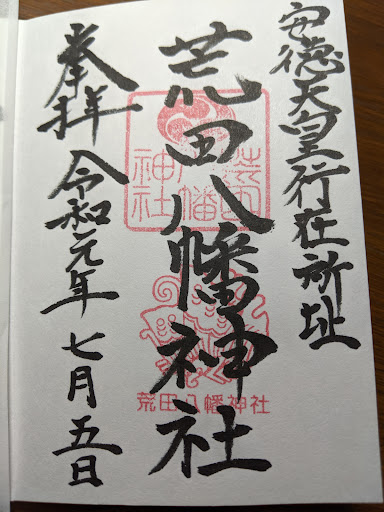 安徳天皇行在所址
荒田八幡神社
荒田八幡神社
荒田八幡神社
奉拝 令和元年七月五日